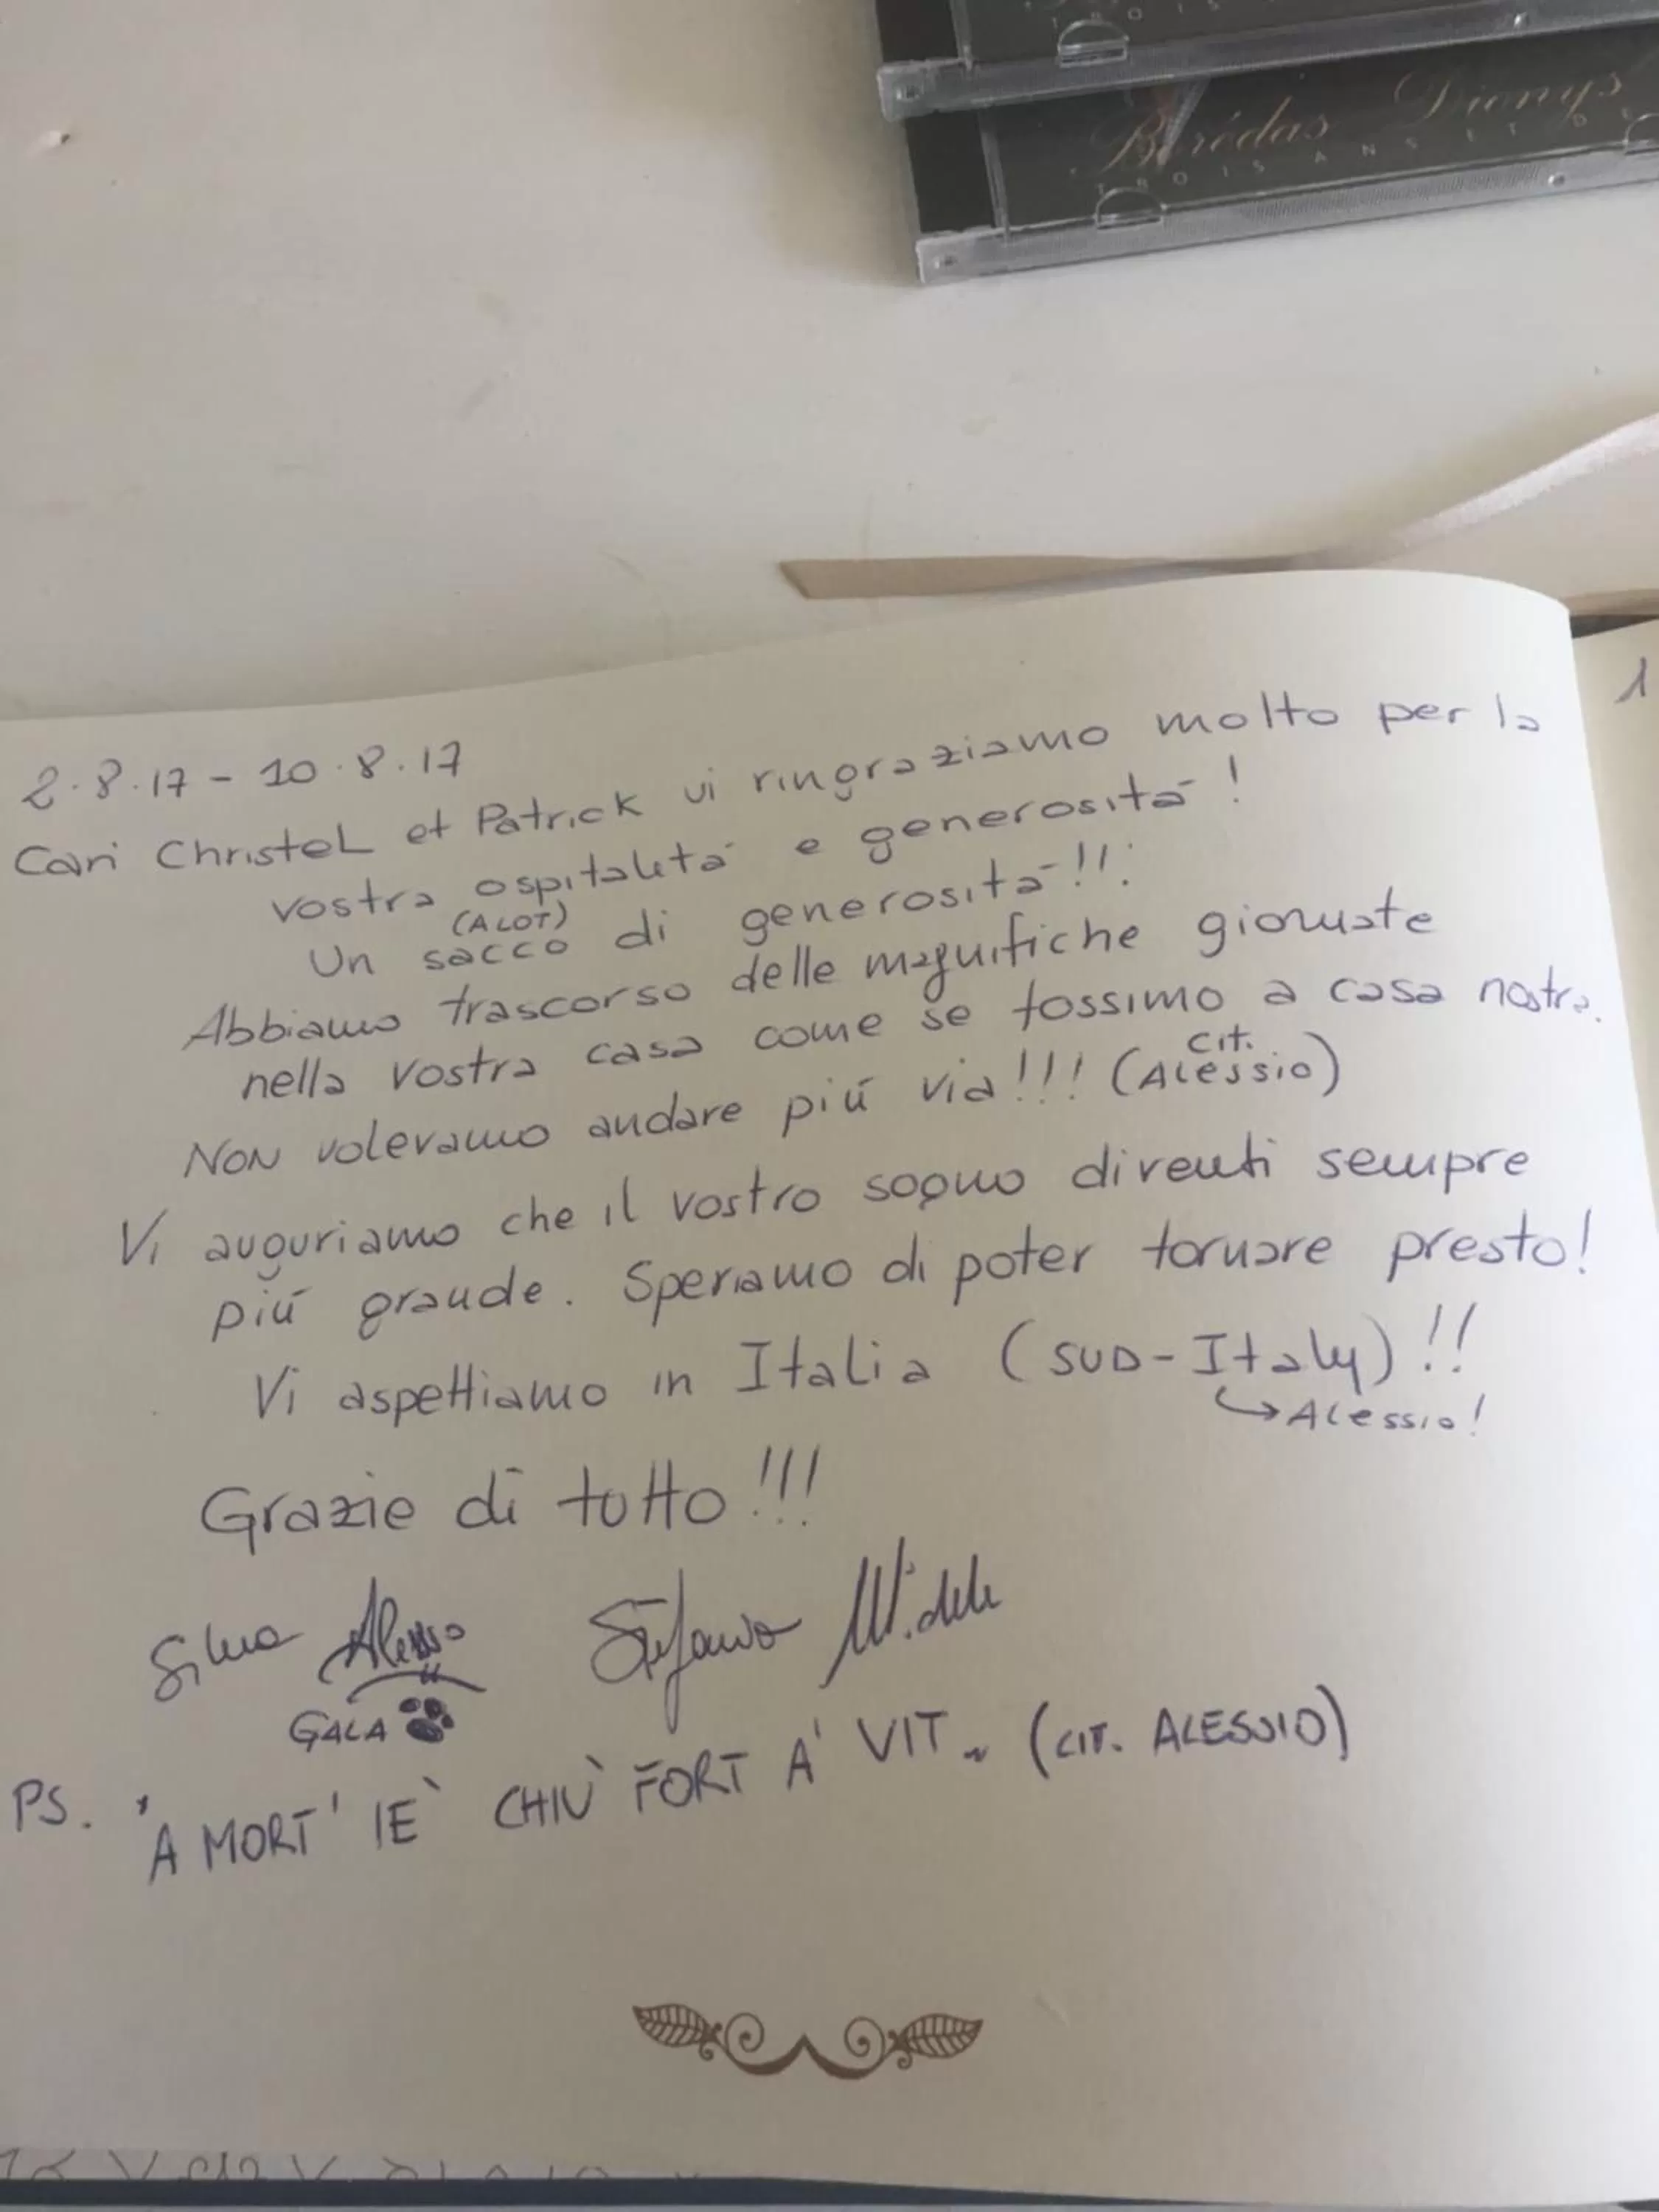 TROIS
Borédas Dionys
TROIS ANS ET DE
1
2.8.17 - 10.8.17
Cari Christel et Patrick vi ringraziamo molto per la
vostra ospitalitá e generositá!
(ALOT)
Un sacco di generositá!!!
Abbiamo trascorso delle magnifiche giornate
nella vostra casa come se fossimo a casa nostra.
cit.
Non volevamo andare piú via!!! (Alessio)
Vi auguriamo che il vostro sogno diventi sempre
piú grande. Speriamo di poter tornare presto!
Vi aspettiamo in Italia (SUD-Italy)!!
↳Alessio!
Grazie di tutto!!!
Silvia Alessio Stefania Michele
GALA
PS. "A MORT' IE` CHIÙ FORT A' VIT" (CIT. ALESSIO)